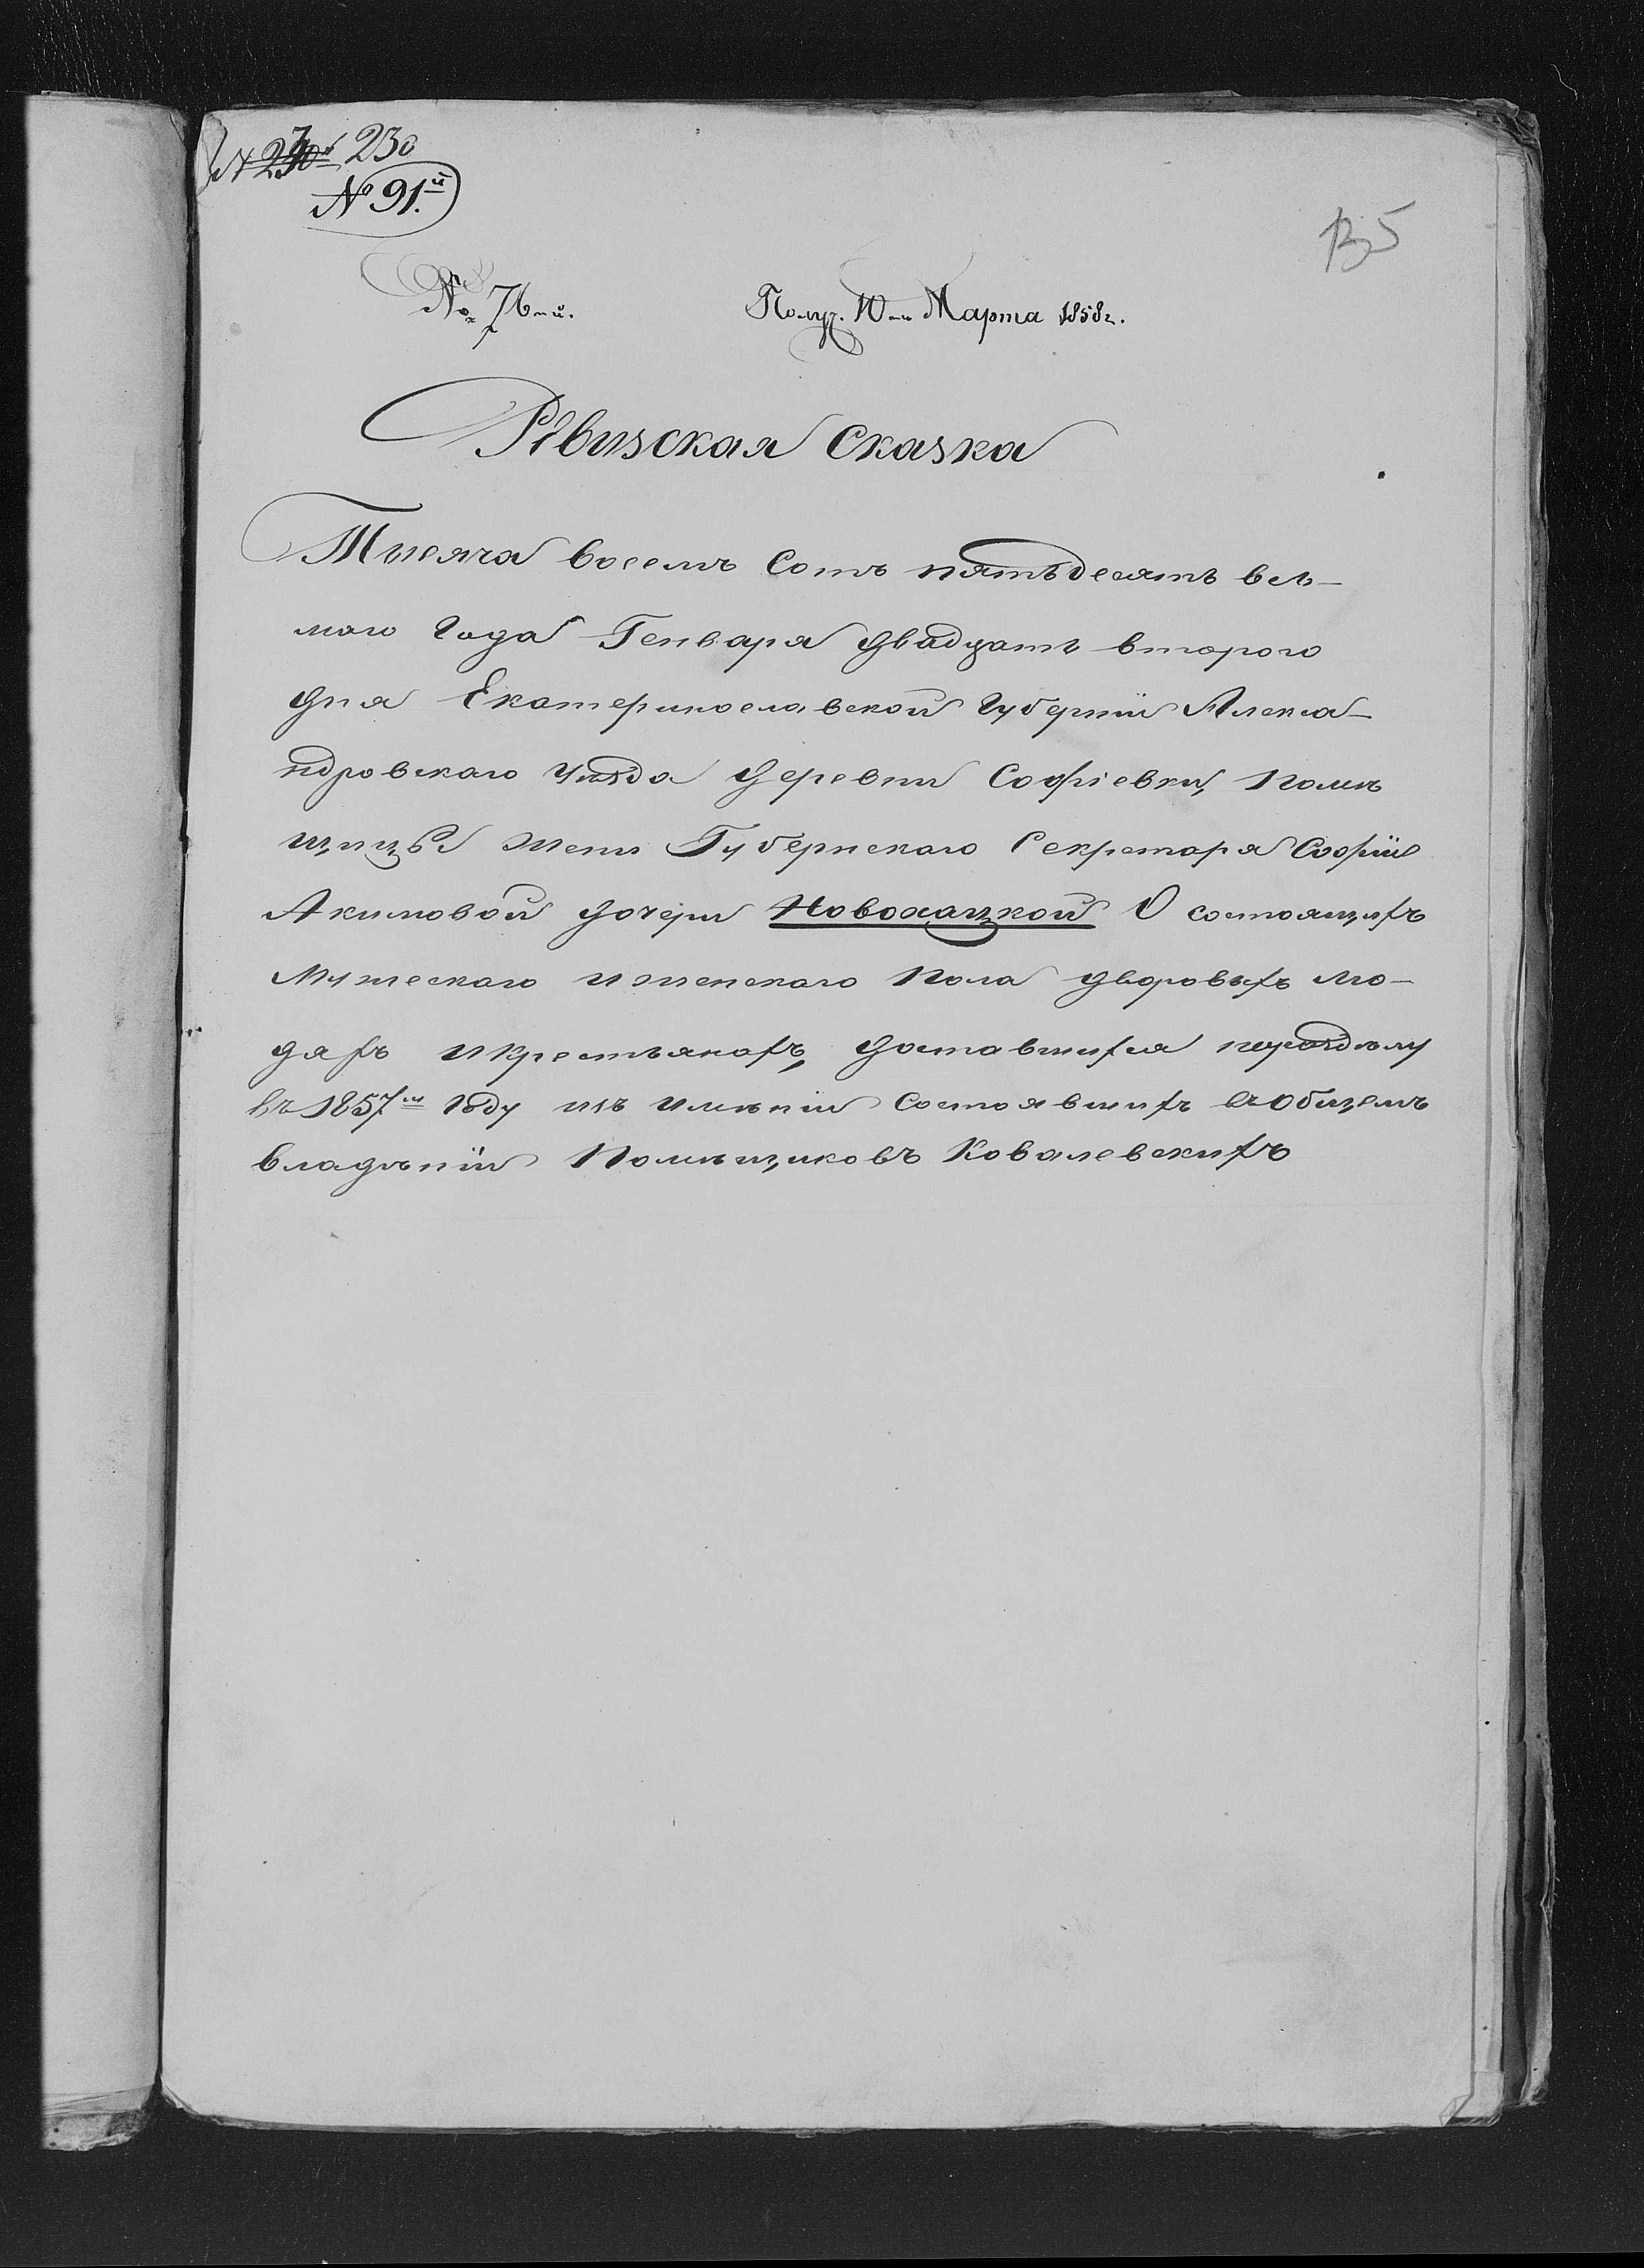 № 230
№ 91.й
135
№ 76-й.
Получ. 10-го Марта 1858 г.
Ревизская сказка
Тысяча восемъ сотъ пятьдесятъ вось-
маго Года Генваря двадцать втораго
дня Екатеринославской Губерніи Алекса-
ндровскаго уѣзда деревни Софіевки, помѣ
щицы жены Губернскаго Секретаря Софіи
Акимовой дочери Новохацкой О состоящихъ
Мужескаго и женскаго Пола дворовыхъ лю-
дяхъ и крестьянахъ, доставшихся по раздѣлу
въ 1857м Году изъ имѣнія состоявшихъ въ общемъ
владѣніи Помѣщиковъ Ковалевскихъ